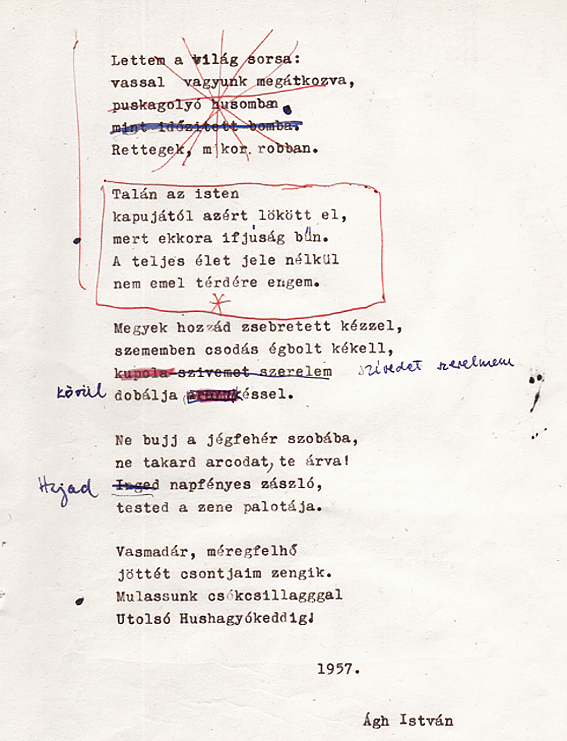 Lettem a világ sorsa:
vassal vagyunk megátkozva,
puskagolyó husomban.
mint időzített bomba.
Rettegek, mikor robban.
Talán az isten
kapujától azért lökött el,
mert ekkora ifjúság bűn.
A teljes élet jele nélkül
nem emel térdére engem.
Megyek hozzád zsebretett kézzel,
szememben csodás égbolt kékell,
kupola szivemet szerelem szívedet szerelmem
körül dobálja késsel.
Ne bujj a jégfehér szobába,
ne takard arcodat, te árva!
Hajad Inged napfényes zászló,
tested a zene palotája.
Vasmadár, méregfelhő
jöttét csontjaim zengik.
Mulassunk csókcsillagggal
Utolsó Hushagyókeddig!
1957.
Ágh István